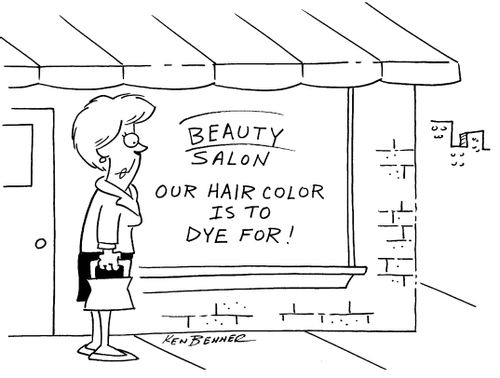 BEAUTY
SALON
OUR HAIR COLOR
IS TO
DYE FOR!
KEN BENNER